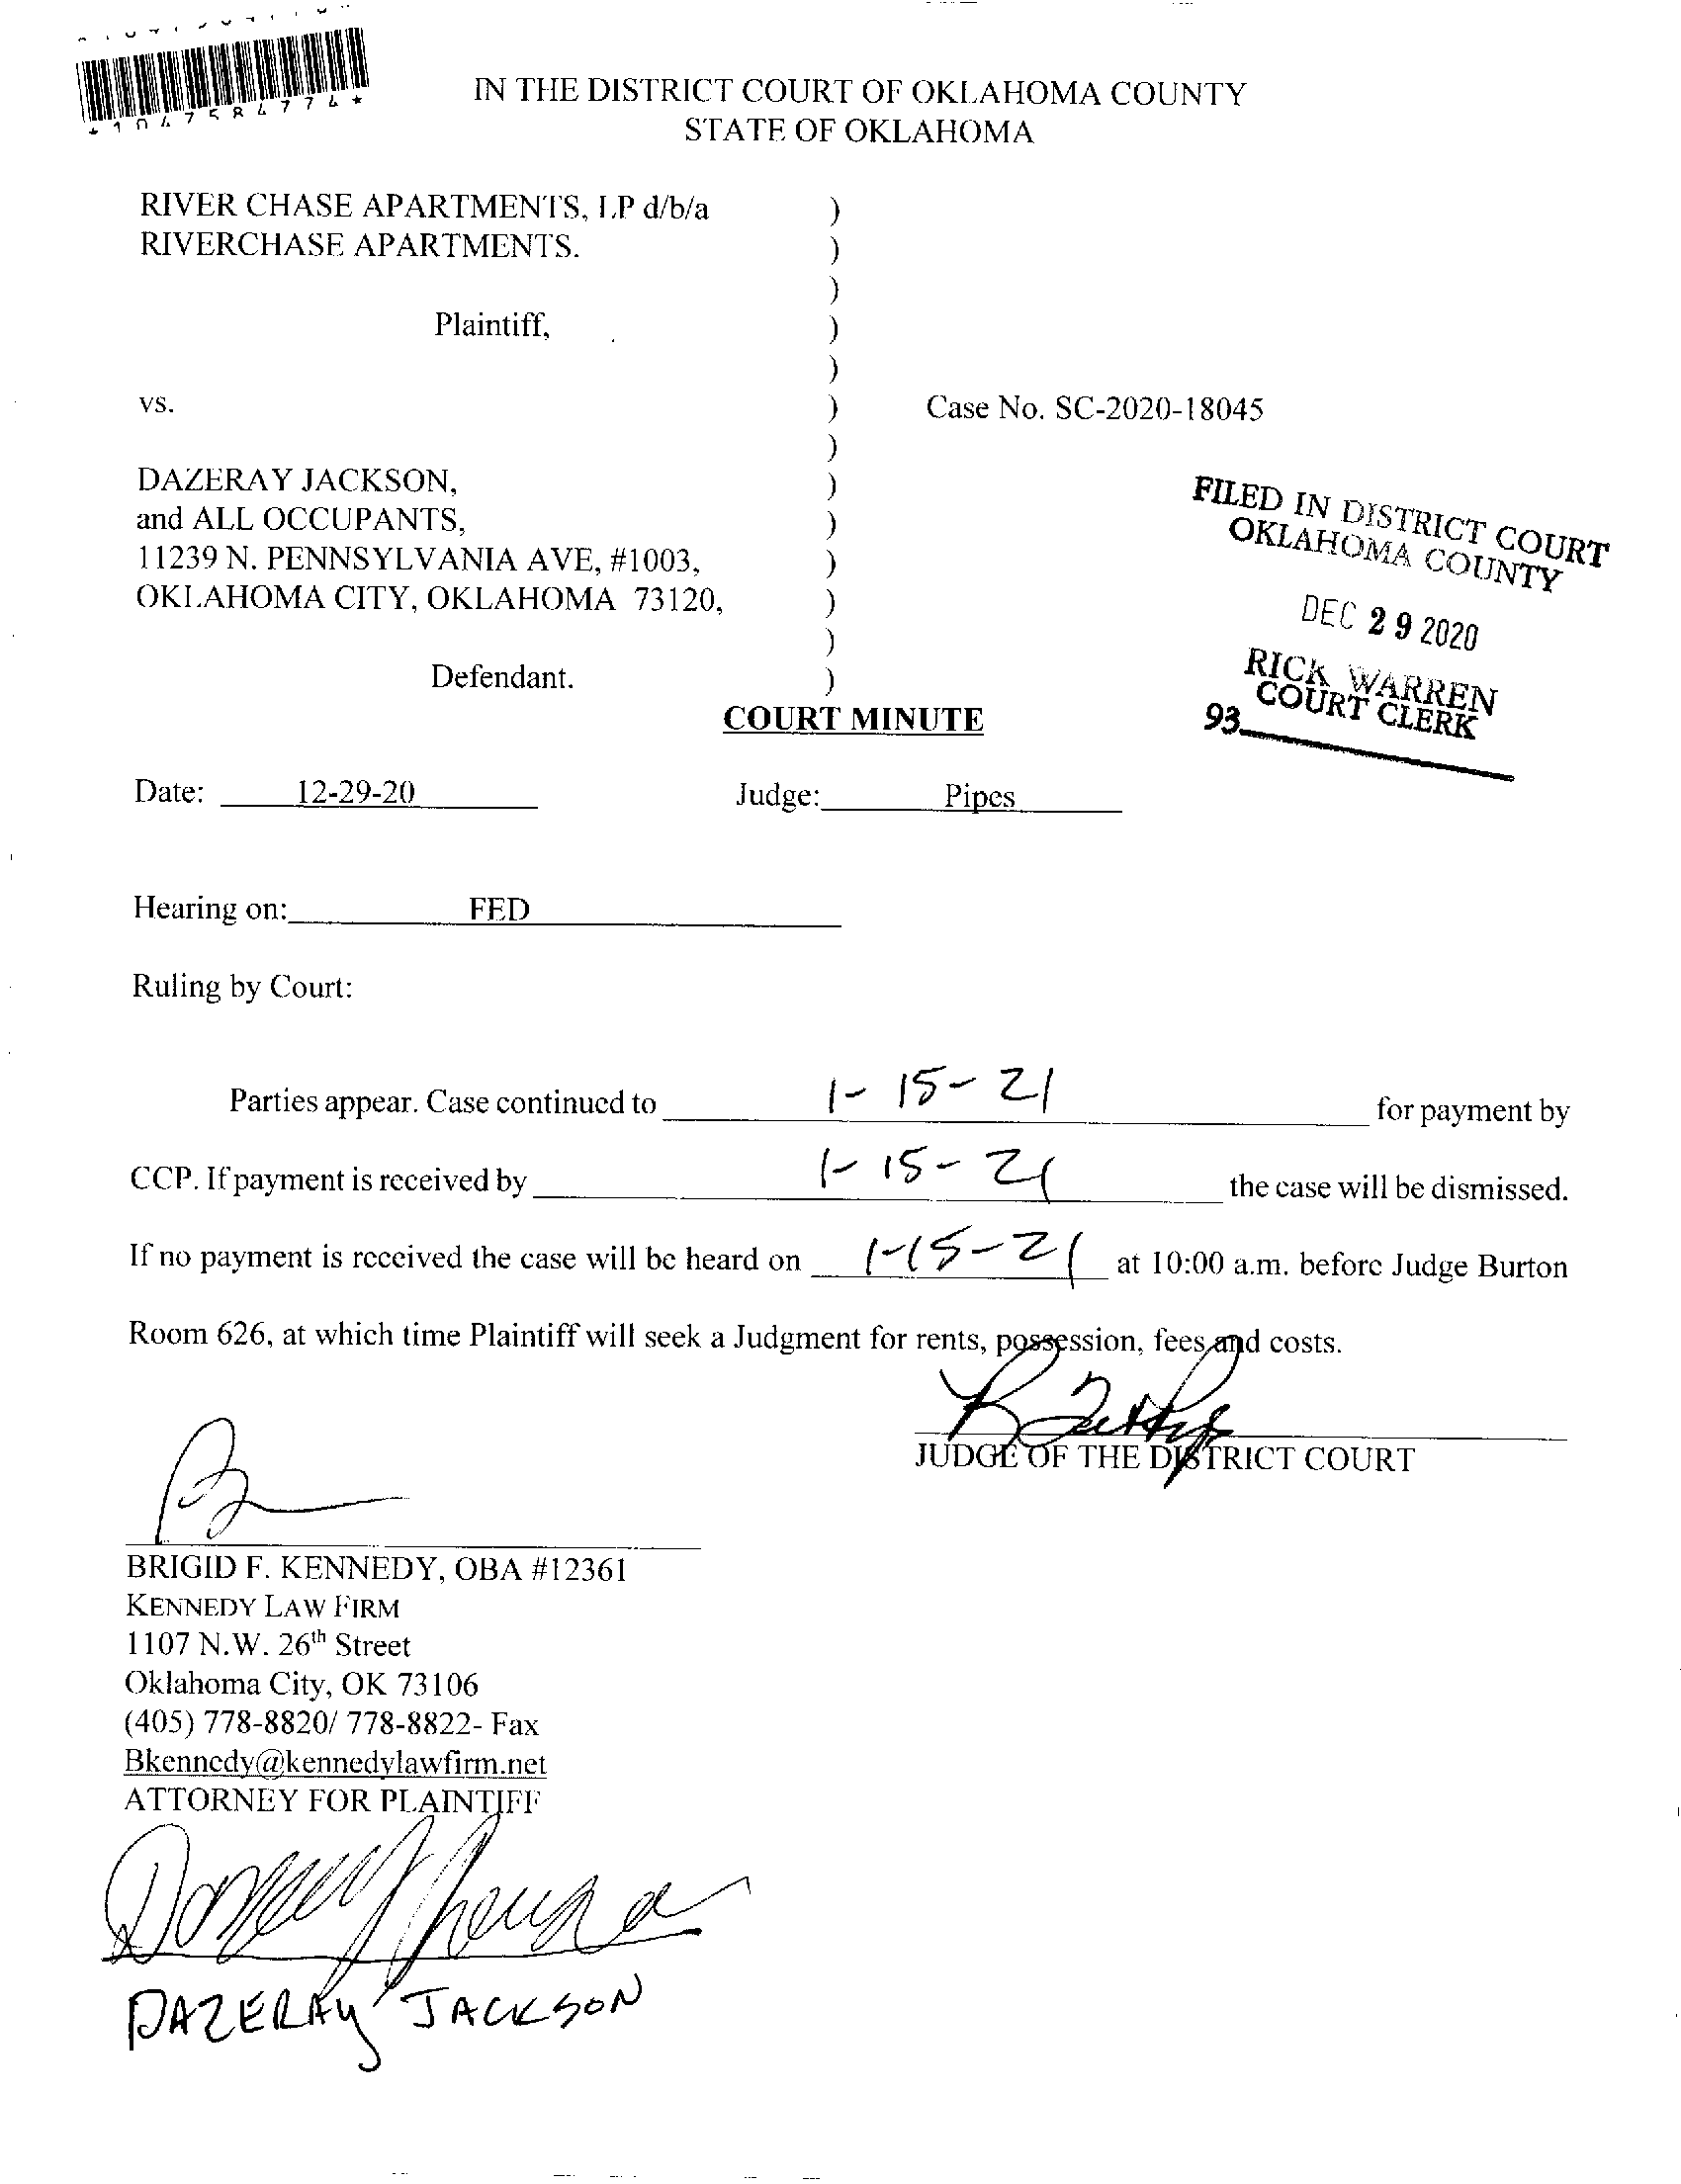 *1047584774*
IN THE DISTRICT COURT OF OKLAHOMA COUNTY
STATE OF OKLAHOMA
RIVER CHASE APARTMENTS, LP d/b/a )
RIVERCHASE APARTMENTS. )
)
Plaintiff, )
)
vs. ) Case No. SC-2020-18045
)
DAZERAY JACKSON, )
and ALL OCCUPANTS, )
11239 N. PENNSYLVANIA AVE, #1003, )
OKLAHOMA CITY, OKLAHOMA 73120, )
)
Defendant. )
FILED IN DISTRICT COURT
OKLAHOMA COUNTY
DEC 29 2020
RICK WARREN
COURT CLERK
93
COURT MINUTE
Date: 12-29-20 Judge: Pipes
Hearing on: FED
Ruling by Court:
Parties appear. Case continued to 1-15-21 for payment by
CCP. If payment is received by 1-15-21 the case will be dismissed.
If no payment is received the case will be heard on 1-15-21 at 10:00 a.m. before Judge Burton
Room 626, at which time Plaintiff will seek a Judgment for rents, possession, fees and costs.
JUDGE OF THE DISTRICT COURT
BRIGID F. KENNEDY, OBA #12361
KENNEDY LAW FIRM
1107 N.W. 26th Street
Oklahoma City, OK 73106
(405) 778-8820/ 778-8822- Fax
Bkennedy@kennedylawfirm.net
ATTORNEY FOR PLAINTIFF
DAZERAY JACKSON